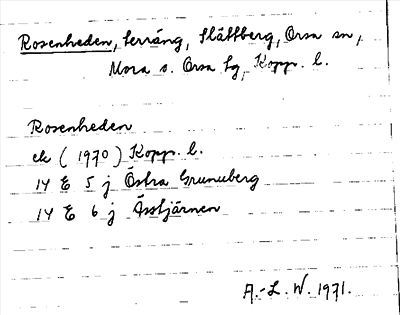 Rosenheden, terräng, Slättberg, Orsa sn,
Mora o. Orsa tg, Kopp. l.
Rosenheden
ek (1970) Kopp. l.
14 E 5 j Östra Grunuberg
14 E 6 j Åsstjärnen
A.-L. W. 1971.